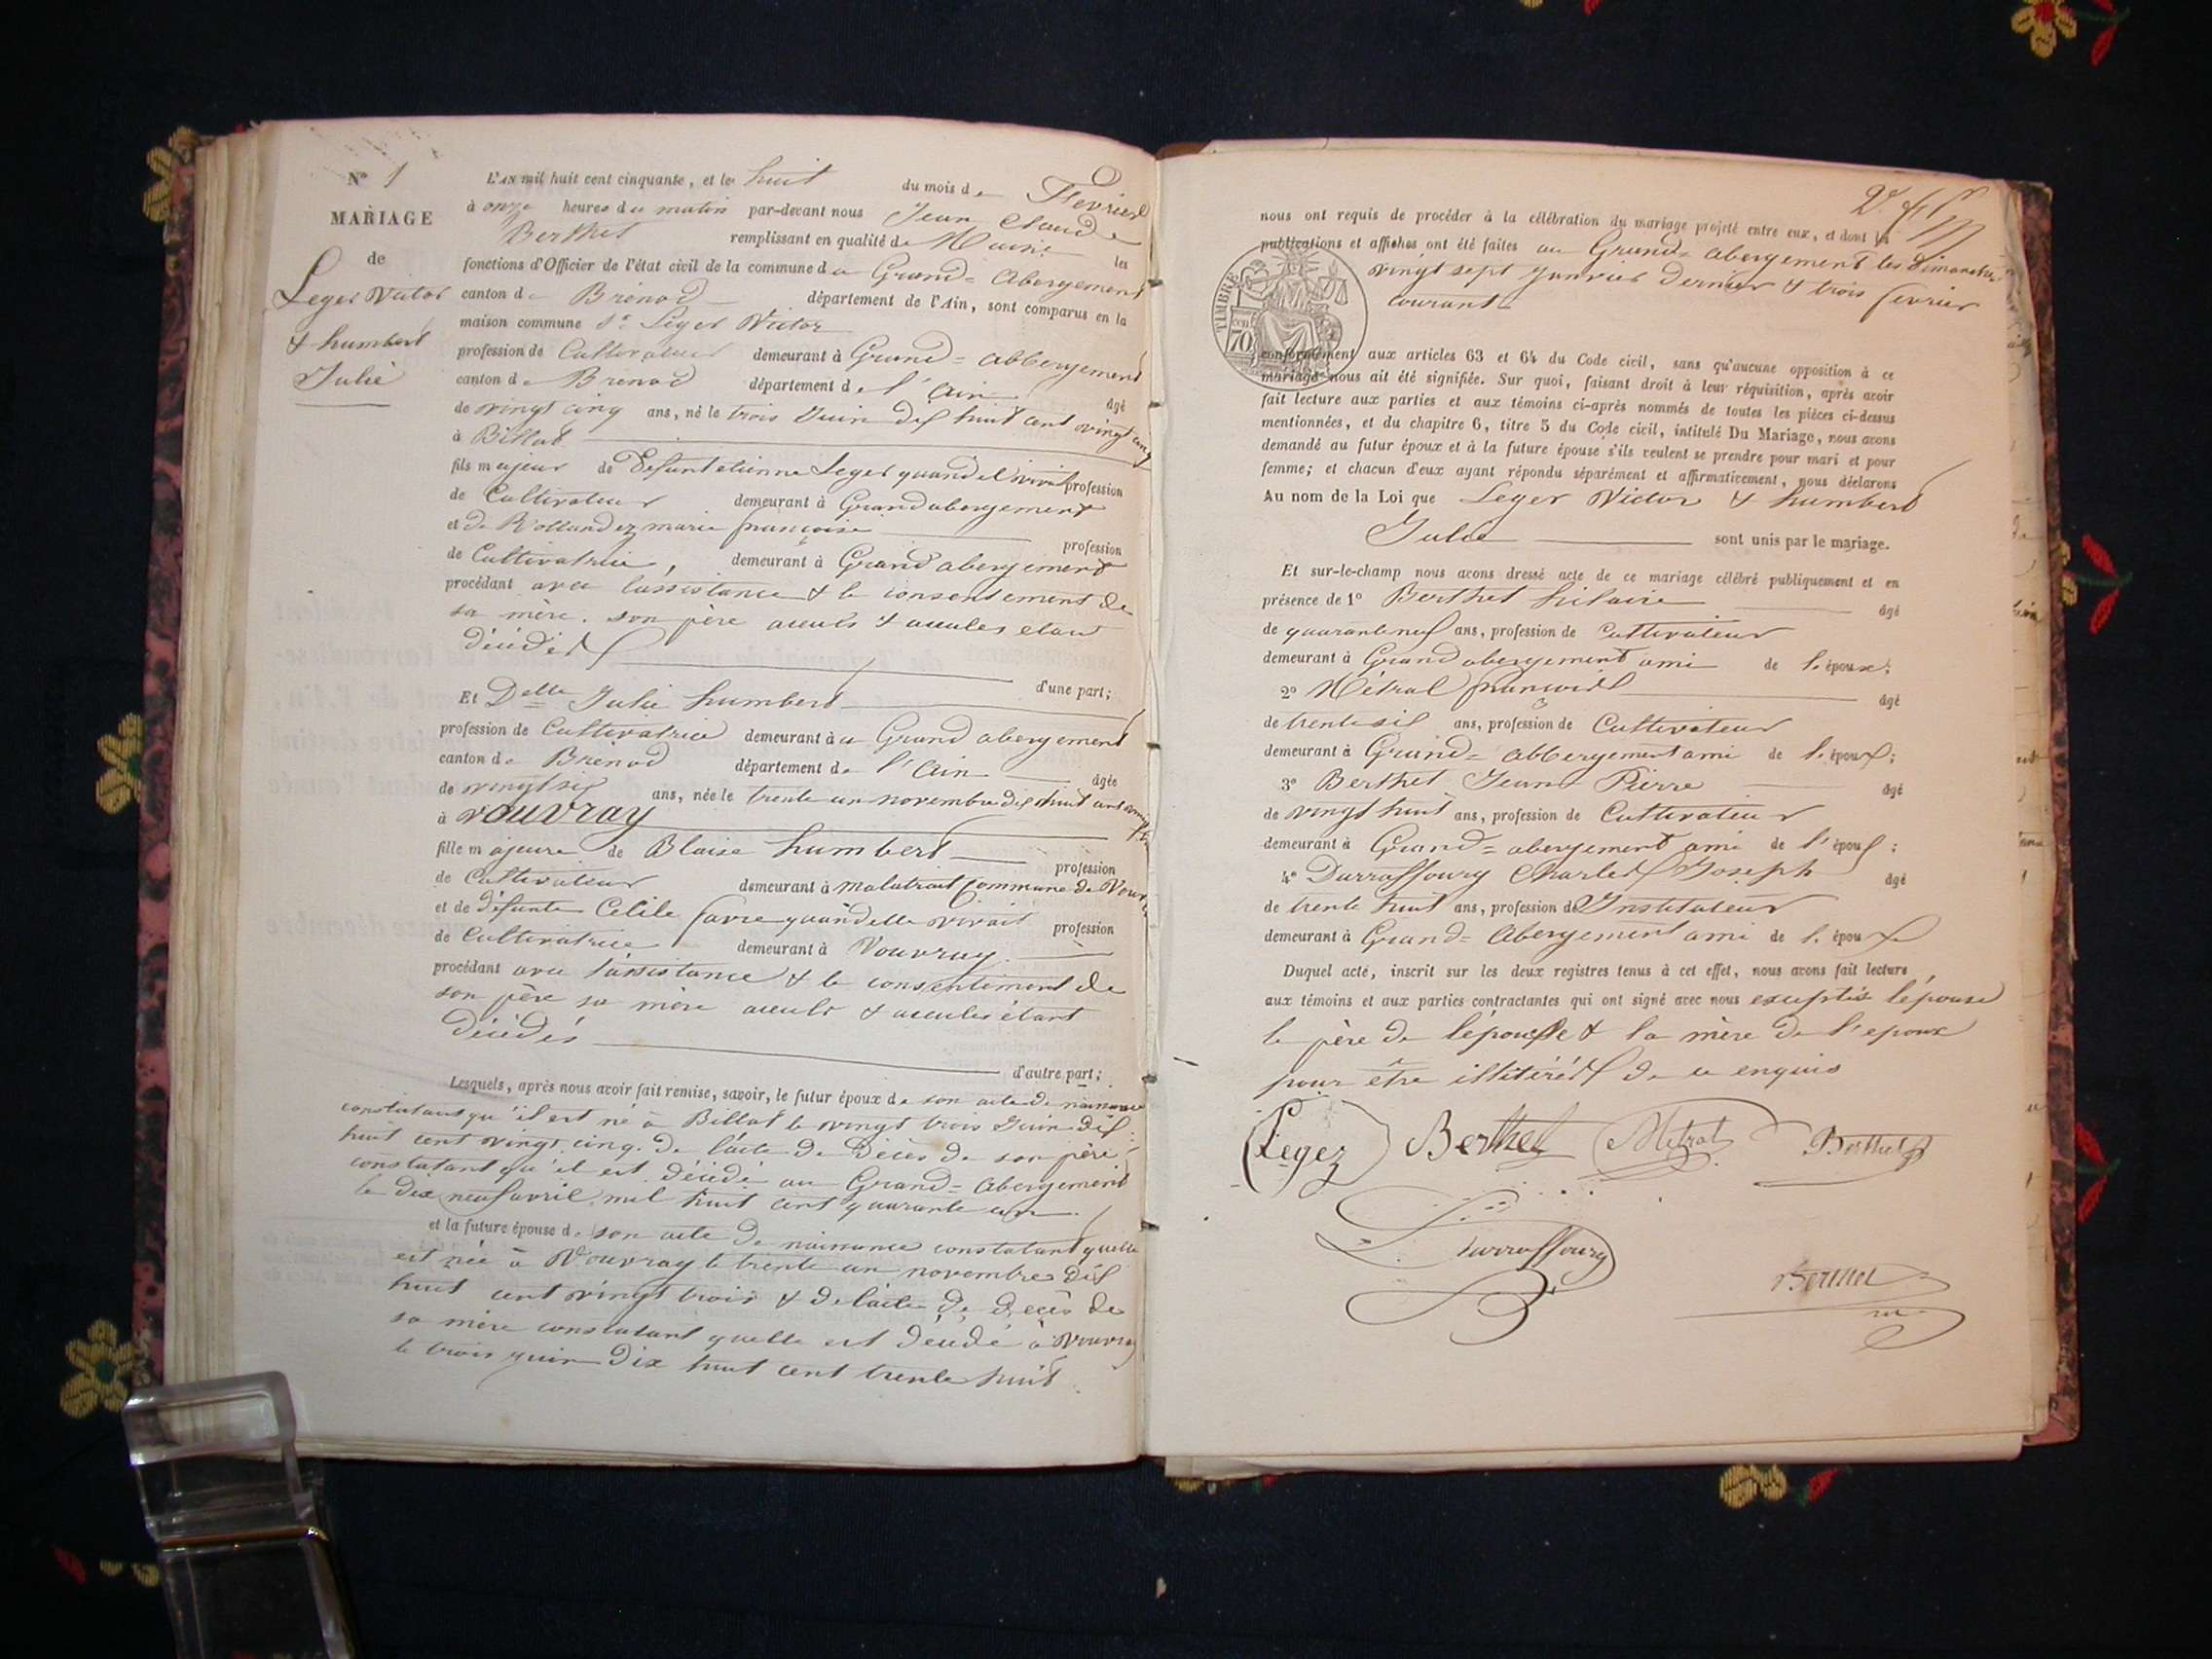 N° 1
MARIAGE
de
Leger Victor
& humbert
Julie
L'AN mil huit cent cinquante, et le huit du mois de Fevrier
à onze heures du matin par-devant nous Jean Claude
Berthet remplissant en qualité de Maire les
fonctions d'Officier de l'état civil de la commune du Grand-Abergement
canton de Brénod département de l'Ain, sont comparus en la
maison commune Sr Léger Victor
profession de Cultivateur demeurant à Grand-abbergement
canton de Brenod département de l'Ain âgé
de vingt cinq ans, né le trois Juin dix huit cent vingt cinq
à Billiat
fils majeur de Défunt etienne Leger quand il vivait profession
de Cultivateur demeurant à Grand abergement
et de Rollandez marie françoise profession
de Cultivatrice, demeurant à Grand abergement
procédant avec l'assistance & le consentement de
sa mère. son père aieuls & aieules etant
décédés
d'une part;
Et Delle Julie humbert
profession de Cultivatrice demeurant à u Grand abergement
canton de Brénod département de l'Ain âgée
de vingt six ans, née le trente un novembre dix huit cent vingt
à vouvray
fille majeure de Blaise humbert profession
de Cultivateur demeurant à malatrait Commune de Vouvray
et de défunte Célile favre quand elle vivait profession
de Cultivatrice demeurant à Vouvray
procédant avec l'assistance & le consentement de
son père sa mère aieuls & aieules étant
décédés
d'autre part;
Lesquels, après nous avoir fait remise, savoir, le futur époux de son acte de naissance
constatant qu'il est né à Billiat le vingt trois Juin dix
huit cent vingt cinq. de l'acte de Décès de son père
constatant qu'il est décédé au Grand-Abergement
le dix neuf avril mil huit cent quarante un.
et la future épouse de son acte de naissance constatant quelle
est née à Vouvray le trente un novembre dix
huit cent vingt trois & de l'acte de decès de
sa mère constatant quelle est décédé à Vouvray
le trois juin Dix huit cent trente huit
nous ont requis de procéder à la célébration du mariage projeté entre eux, et dont les
publications et affiches ont été faites au Grand-abergement les dimanches
vingt sept Janvier dernier & trois fevrier
courant
TIMBRE
70
conformément aux articles 63 et 64 du Code civil, sans qu'aucune opposition à ce
mariage nous ait été signifiée. Sur quoi, faisant droit à leur réquisition, après avoir
fait lecture aux parties et aux témoins ci-après nommés de toutes les pièces ci-dessus
mentionnées, et du chapitre 6, titre 5 du Code civil, intitulé Du Mariage, nous avons
demandé au futur époux et à la future épouse s'ils veulent se prendre pour mari et pour
femme; et chacun d'eux ayant répondu séparément et affirmativement, nous déclarons
Au nom de la Loi que Leger Victor & humbert
Julie sont unis par le mariage.
Et sur-le-champ nous avons dressé acte de ce mariage célébré publiquement et en
présence de 1° Berthet hilaire âgé
de quarante neuf ans, profession de Cultivateur
demeurant à Grand abergement ami de l'époux;
2° Métral françois âgé
de trente six ans, profession de Cultivateur
demeurant à Grand-abbergement ami de l'époux;
3° Berthet Jean Pierre âgé
de vingt huit ans, profession de Cultivateur
demeurant à Grand-abergement ami de l'époux;
4° Darrassoury Charles Joseph âgé
de trente huit ans, profession d Instituteur
demeurant à Grand-Abergement ami de l'époux
Duquel acte, inscrit sur les deux registres tenus à cet effet, nous avons fait lecture
aux témoins et aux parties contractantes qui ont signé avec nous exceptés l'épouse
le père de l'épouse & la mère de l'epoux
pour être illitérés de ce enquis
Legez Berthet Métral Berthet
Darrassoury
Berthet